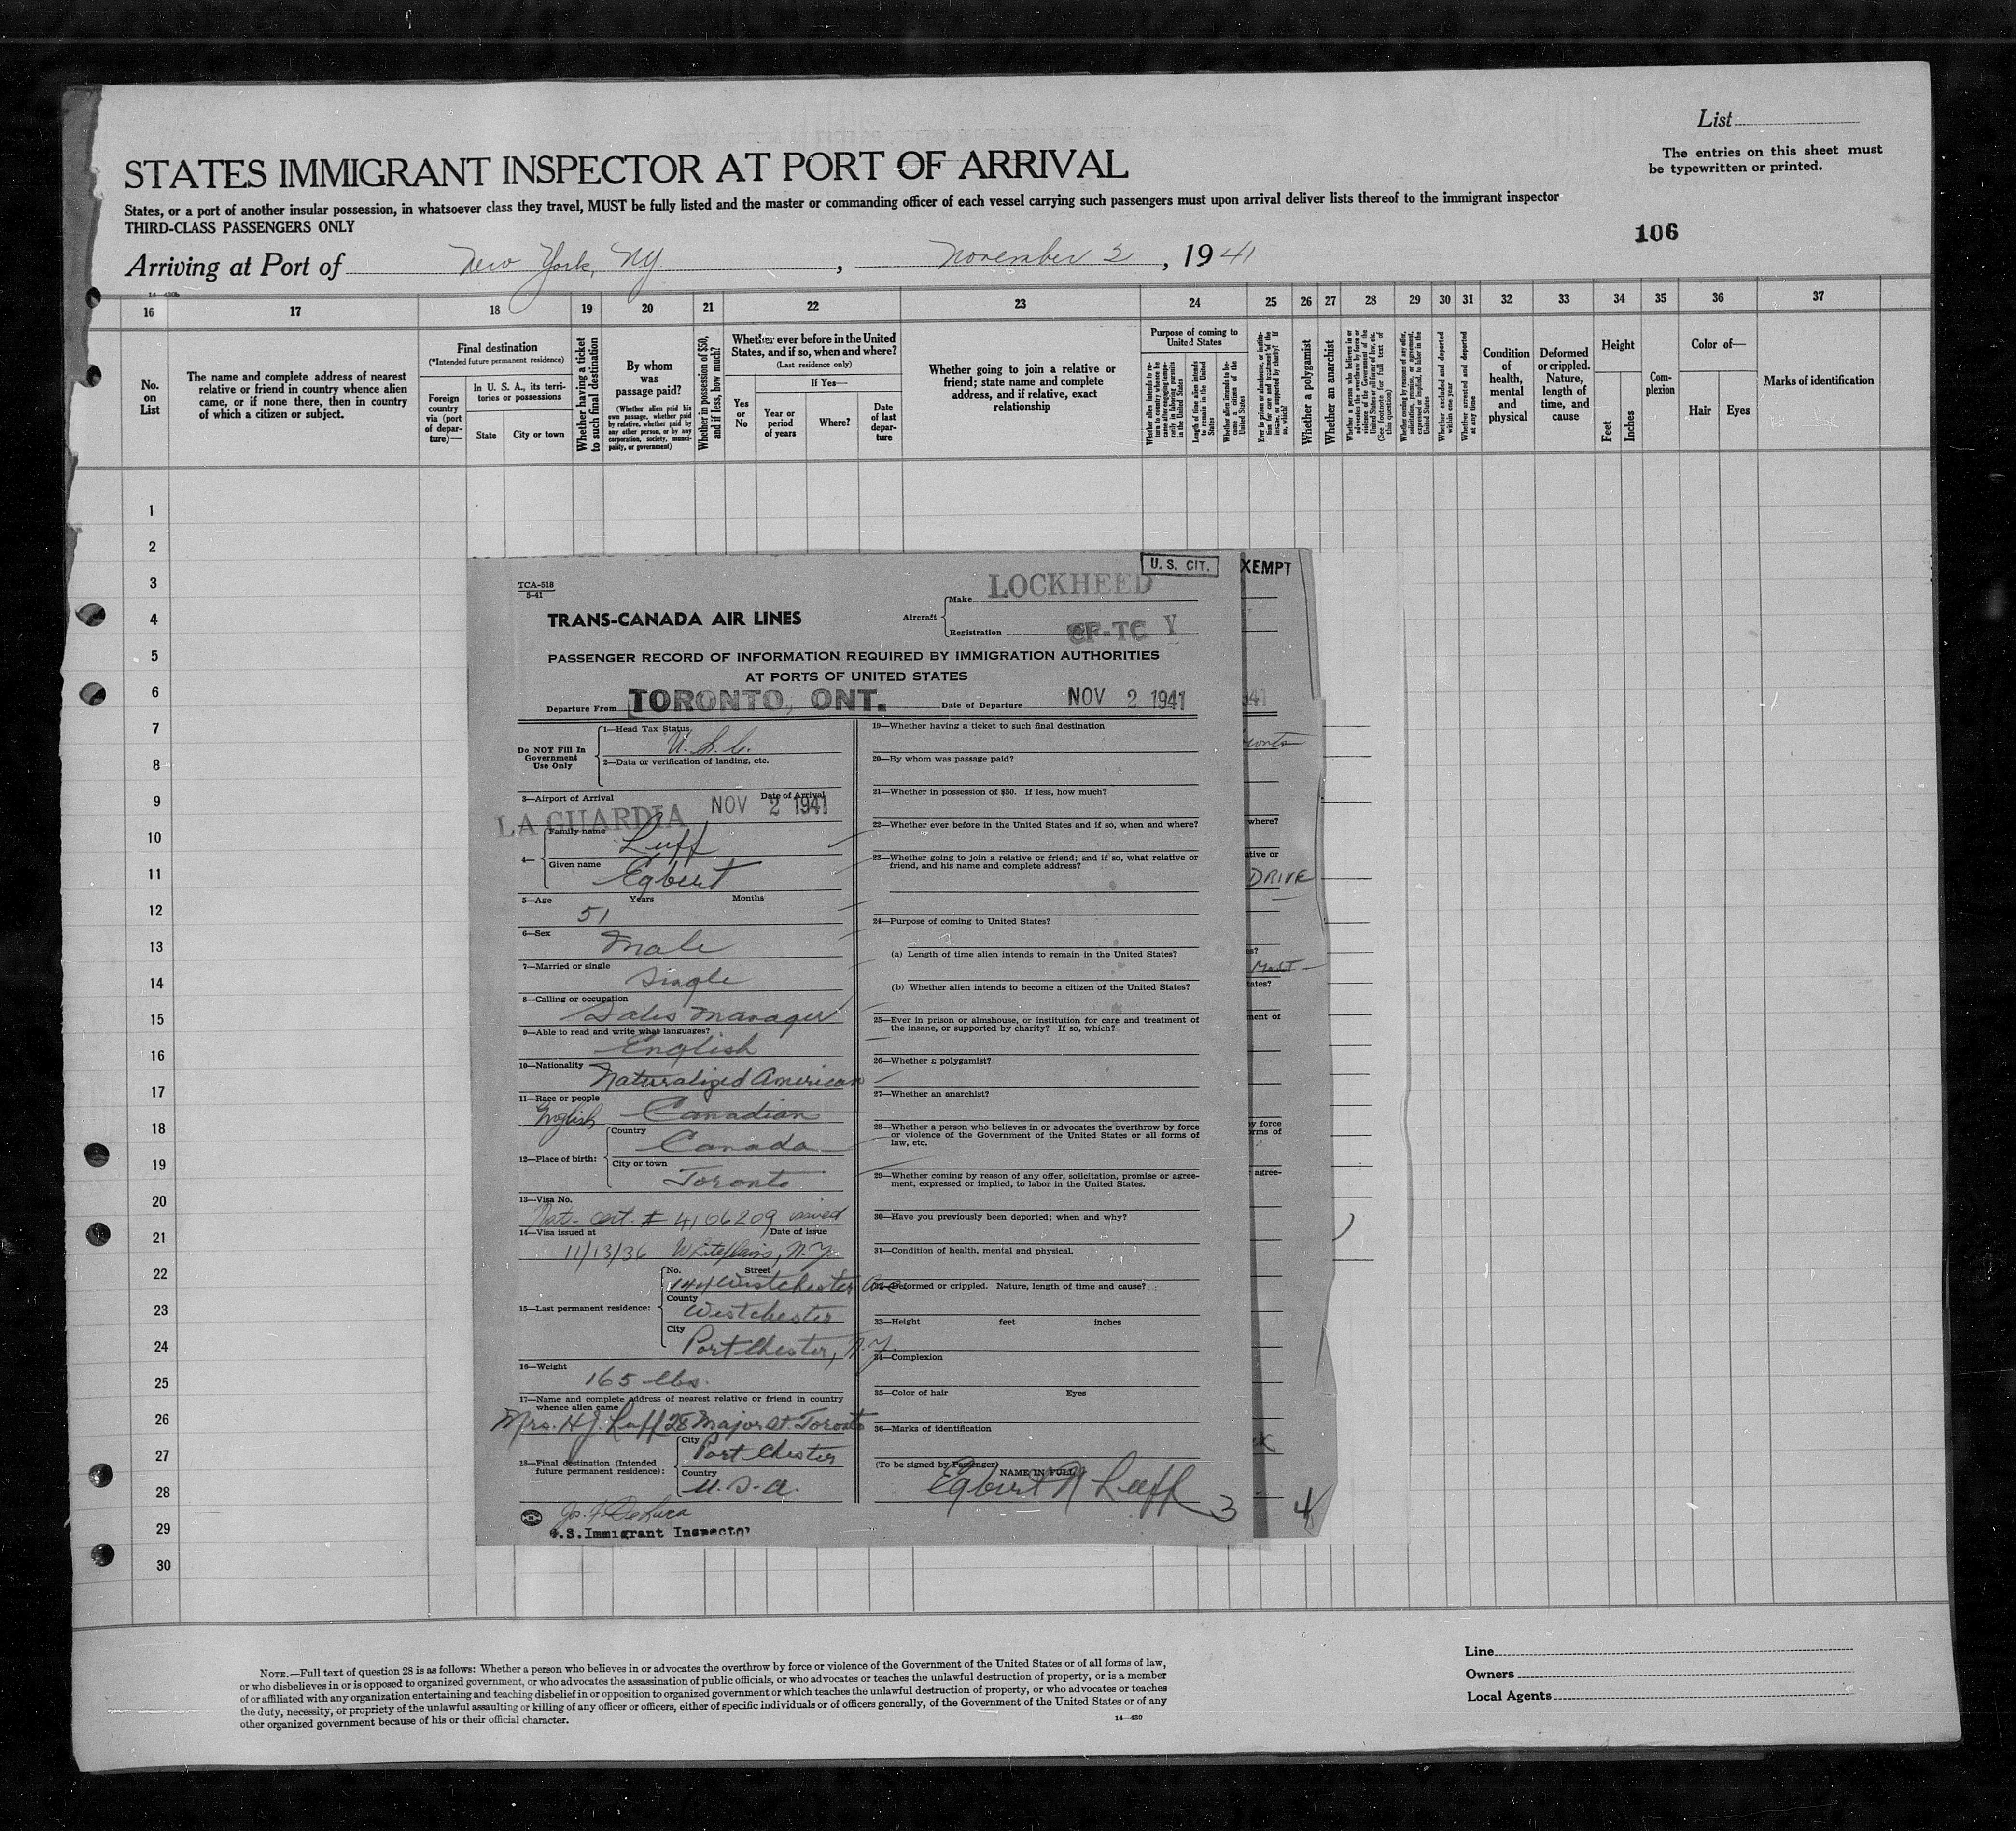 List
The entries on this sheet must
be typewritten or printed.
STATES IMMIGRANT INSPECTOR AT PORT OF ARRIVAL
States, or a port of another insular possession, in whatsoever class they travel, MUST be fully listed and the master or commanding officer of each vessel carrying such passengers must upon arrival deliver lists thereof to the immigrant inspector
THIRD-CLASS PASSENGERS ONLY
106
Arriving at Port of New York, NY, November 2, 1941
16 17 18 19 20 21 22 23 24 25 26 27 28 29 30 31 32 33 34 35 36 37
No.
on
List
The name and complete address of nearest
relative or friend in country whence alien
came, or if none there, then in country
of which a citizen or subject.
Final destination
(*Intended future permanent residence)
Foreign
country
via (port
of depar-
ture)—
In U. S. A., its terri-
tories or possessions
State
City or town
Whether having a ticket
to such final destination
By whom
was
passage paid?
(Whether alien paid his
own passage, whether paid
by relative, whether paid by
any other person, or by any
corporation, society, munici-
pality, or government)
Whether in possession of $50,
and if less, how much?
Whether ever before in the United
States, and if so, when and where?
(Last residence only)
Yes
or
No
If Yes—
Year or
period
of years
Where?
Date
of last
depar-
ture
Whether going to join a relative or
friend; state name and complete
address, and if relative, exact
relationship
Purpose of coming to
United States
Length of time alien intends
to remain in the United
States
Whether alien intends to be-
come a citizen of the
United States
Whether a polygamist
Whether an anarchist
Whether excluded and deported
within one year
Whether arrested and deported
at any time
Condition
of
health,
mental
and
physical
Deformed
or crippled.
Nature,
length of
time, and
cause
Height
Feet
Inches
Com-
plexion
Color of—
Hair
Eyes
Marks of identification
1
2
3
4
5
6
7
8
9
10
11
12
13
14
15
16
17
18
19
20
21
22
23
24
25
26
27
28
29
30
U. S. CIT.
XEMPT
TCA-518
5-41
TRANS-CANADA AIR LINES
Aircraft
Make LOCKHEED
Registration CF-TC Y
PASSENGER RECORD OF INFORMATION REQUIRED BY IMMIGRATION AUTHORITIES
AT PORTS OF UNITED STATES
Departure From TORONTO, ONT. Date of Departure NOV 2 1941
Do NOT Fill In
Government
Use Only
1—Head Tax Status
U.S.C.
2—Data or verification of landing, etc.
3—Airport of Arrival Date of Arrival
LA GUARDIA NOV 2 1941
4—
Family name
Luff
Given name
Egbert
5—Age Years Months
51
6—Sex
Male
7—Married or single
Single
8—Calling or occupation
Sales Manager
9—Able to read and write what languages?
English
10—Nationality
Naturalized American
11—Race or people
English Canadian
12—Place of birth:
Country
Canada
City or town
Toronto
13—Visa No.
Nat. Cert. # 4106209 issued
14—Visa issued at Date of issue
11/13/36 Whiteplains, N.Y.
15—Last permanent residence:
No. Street
144 Westchester Ave
County
Westchester
City
Port Chester, N.Y.
16—Weight
165 lbs.
17—Name and complete address of nearest relative or friend in country
whence alien came
Mrs. H J. Luff 28 Major St. Toronto
18—Final destination (Intended
future permanent residence):
City
Port Chester
Country
U.S.A.
U.S. Immigrant Inspector
19—Whether having a ticket to such final destination
20—By whom was passage paid?
21—Whether in possession of $50. If less, how much?
22—Whether ever before in the United States and if so, when and where?
23—Whether going to join a relative or friend; and if so, what relative or
friend, and his name and complete address?
24—Purpose of coming to United States?
(a) Length of time alien intends to remain in the United States?
(b) Whether alien intends to become a citizen of the United States?
25—Ever in prison or almshouse, or institution for care and treatment of
the insane, or supported by charity? If so, which?
26—Whether a polygamist?
27—Whether an anarchist?
28—Whether a person who believes in or advocates the overthrow by force
or violence of the Government of the United States or all forms of
law, etc.
29—Whether coming by reason of any offer, solicitation, promise or agree-
ment, expressed or implied, to labor in the United States.
30—Have you previously been deported; when and why?
31—Condition of health, mental and physical.
32—Deformed or crippled. Nature, length of time and cause?
33—Height feet inches
34—Complexion
35—Color of hair Eyes
36—Marks of identification
(To be signed by Passenger)
NAME IN FULL
Egbert N Luff
3
4
where?
DRIVE
ment of
agree-
Line
Owners
Local Agents
NOTE.—Full text of question 28 is as follows: Whether a person who believes in or advocates the overthrow by force or violence of the Government of the United States or of all forms of law,
or who disbelieves in or is opposed to organized government, or who advocates the assassination of public officials, or who advocates or teaches the unlawful destruction of property, or is a member
of or affiliated with any organization entertaining and teaching disbelief in or opposition to organized government or which teaches the unlawful destruction of property, or who advocates or teaches
the duty, necessity, or propriety of the unlawful assaulting or killing of any officer or officers, either of specific individuals or of officers generally, of the Government of the United States or of any
other organized government because of his or their official character.
14—430